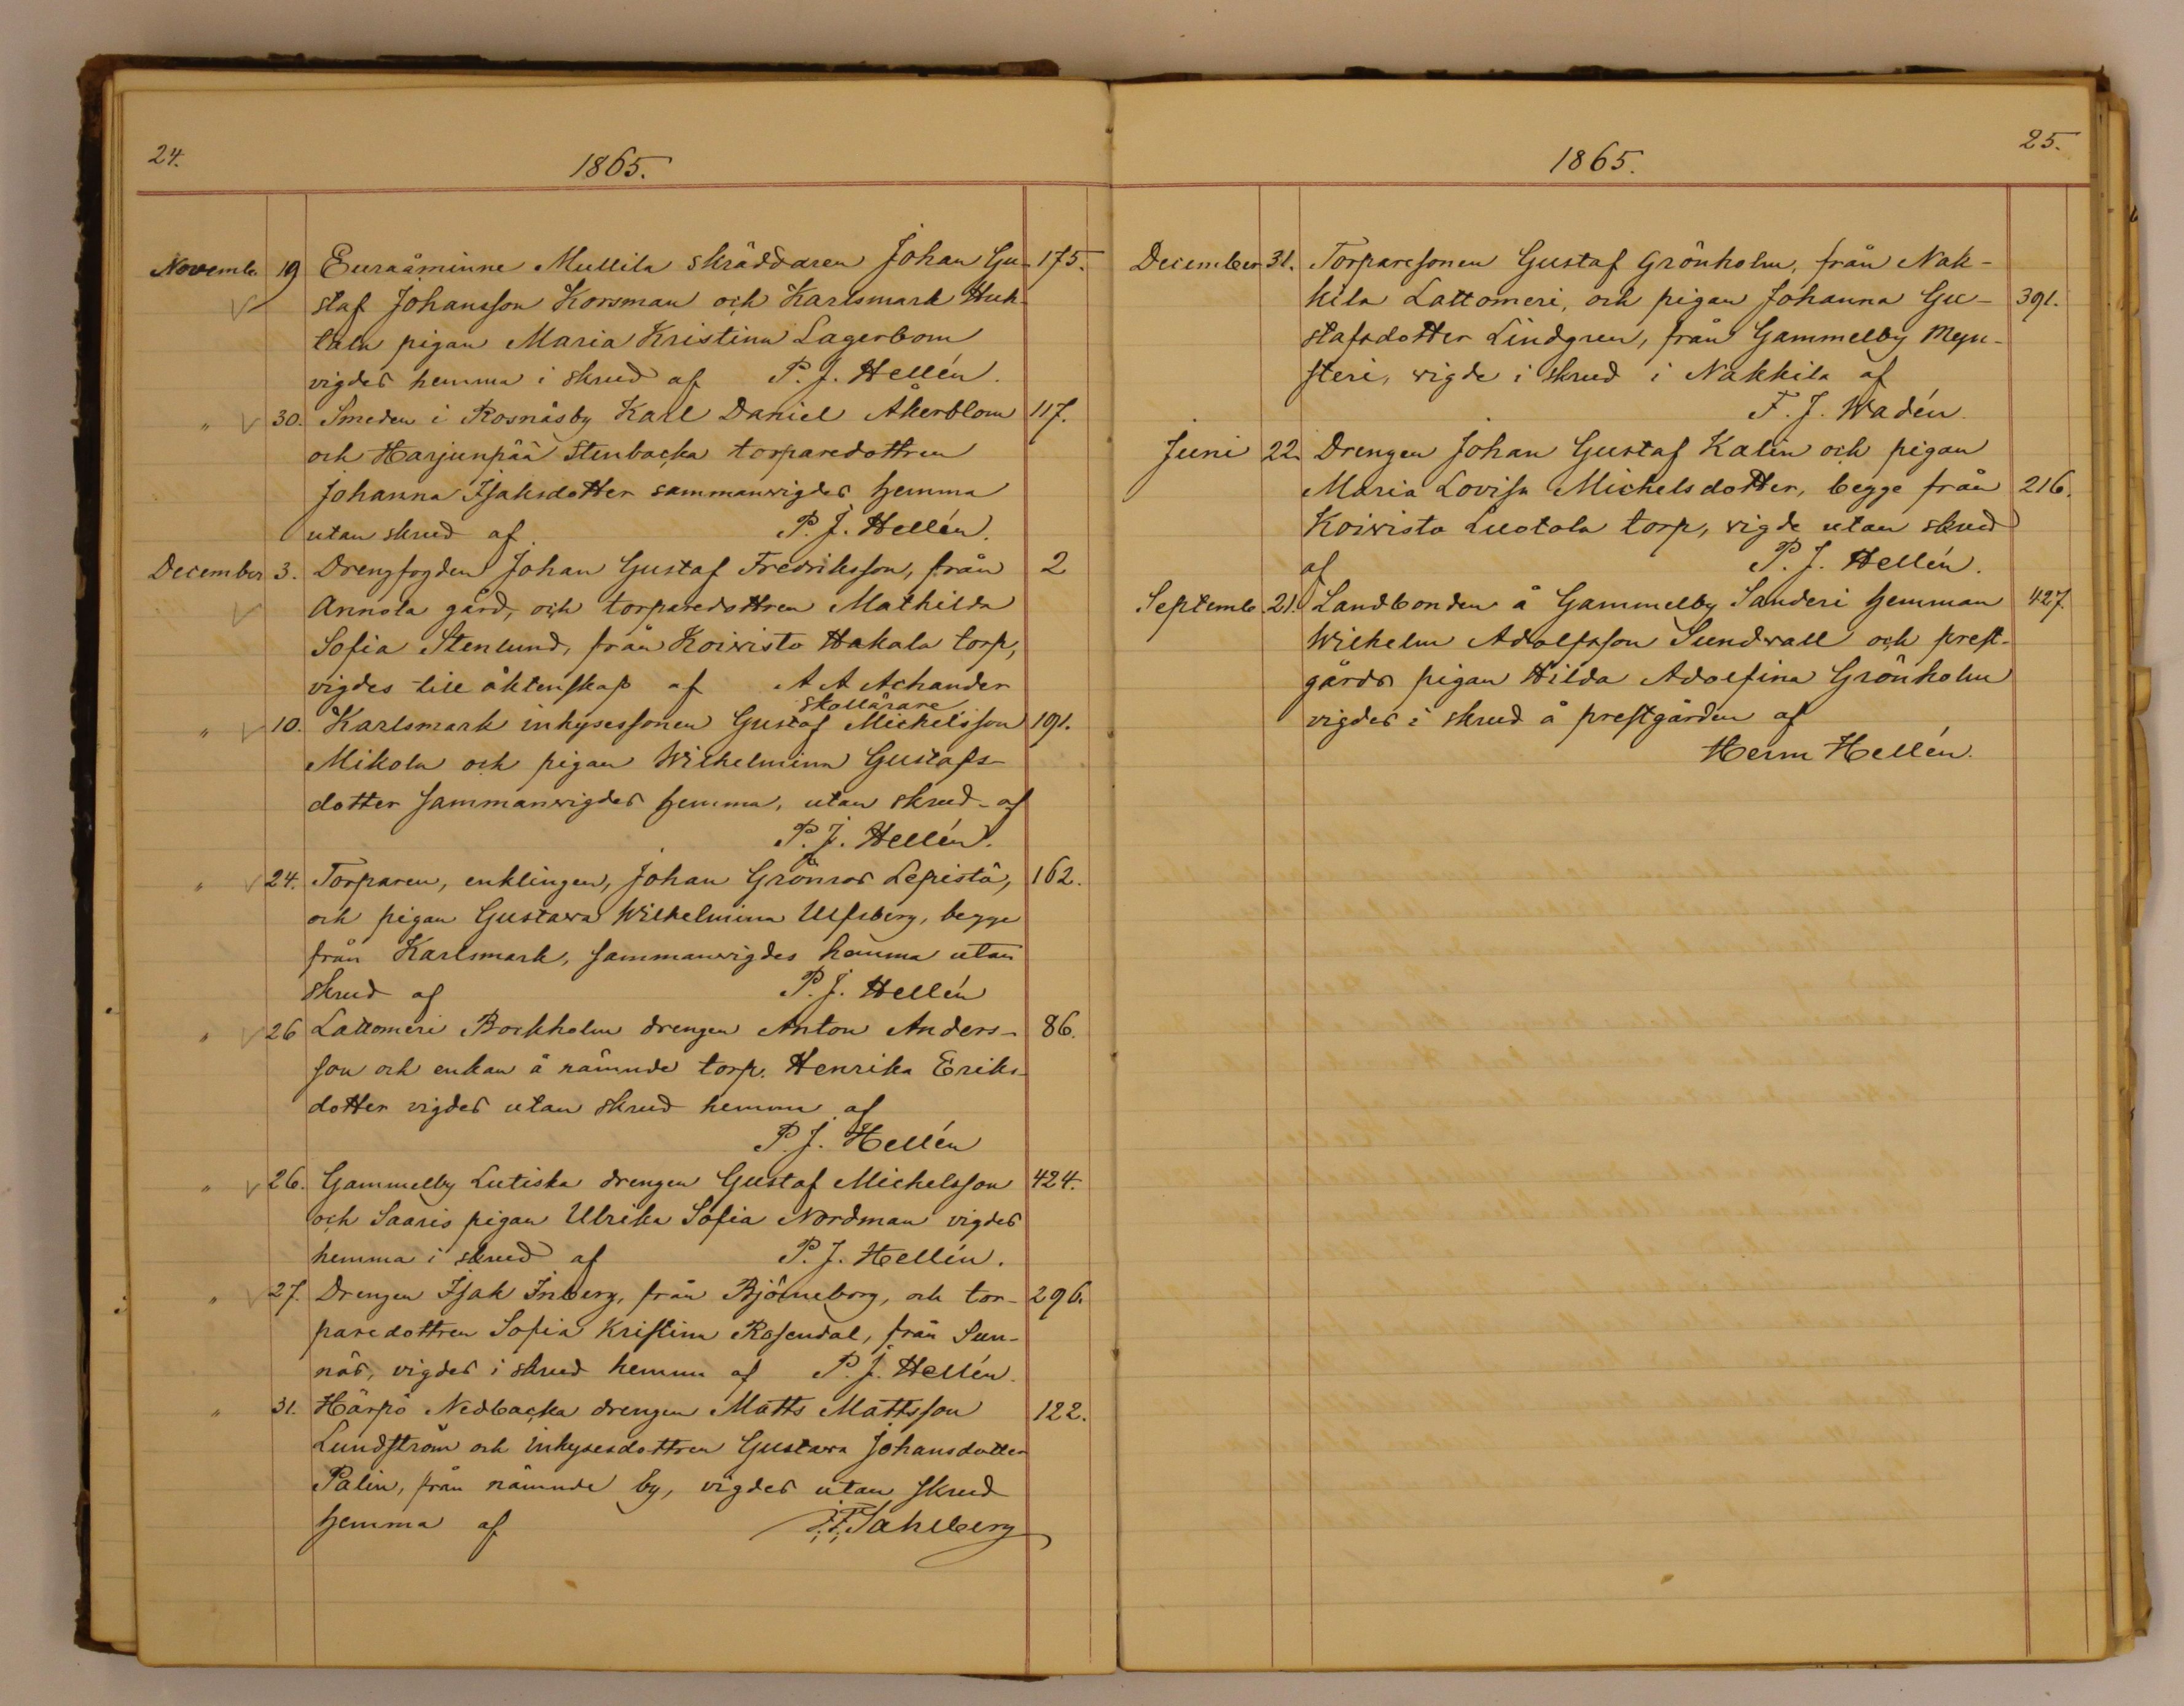 24.
1865.
Novemb. 19 Euraåminne Mullila skräddaren Johan Gu- 175.
staf Johansson Korsman och Karlsmark Huh-
tala pigan Maria Kristina Lagerbom
vigdes hemma i skrud af P. J. Hellén.
" 30. Smeden i Rosnäsby Karl Daniel Åkerblom 117.
och Harjunpää Stenbacka torparedottren
Johanna Isaksdotter sammanvigdes hemma
utan skrud af P. J. Hellén.
December 3. Drengfogden Johan Gustaf Fredriksson, från 2
Annola gård, och torparedottren Mathilda
Sofia Stenlund, från Koivisto Hakala torp,
vigdes till äktenskap af A A Achander
skollärare
" 10. Karlsmark inhysessonen Gustaf Michelsson 191.
Mikola och pigan Wilhelmina Gustafs-
dotter sammanvigdes hemma, utan skrud af
P. J. Hellén.
" 24. Torparen, enklingen, Johan Grönros Lepistö, 162.
och pigan Gustava Wilhelmina Ulfsberg, begge
från Karlsmark, sammanvigdes hemma utan
skrud af P. J. Hellén
" 26 Lattomeri Borkholm drengen Anton Anders- 86.
son och enkan å nämnde torp. Henrika Eriks-
dotter vigdes utan skrud hemma af
P. J. Hellén
" 26. Gammelby Lutiska drengen Gustaf Michelsson 424.
och Saaris pigan Ulrika Sofia Nordman vigdes
hemma i skrud af P. J. Hellén.
" 27. Drengen Isak Inberg, från Björneborg, och tor- 296.
paredottren Sofia Kristina Rosendal, från Sun-
näs, vigdes i skrud hemma af P. J. Hellén.
" 31. Härpö Nedbacka drengen Matts Mattsson 122.
Lundström och inhysesdottren Gustava Johansdotter
Palin, från nämnde by, vigdes utan skrud
hemma af Sahlberg
25.
1865.
December 31. Torparesonen Gustaf Grönholm, från Nak-
kila Lattomeri, och pigan Johanna Gu- 391.
stafsdotter Lindgren, från Gammelby Myn-
steri, vigde i skrud i Nakkila af
F. J. Wadén.
Juni 22. Drengen Johan Gustaf Kalin och pigan
Maria Lovisa Michelsdotter, begge från 216.
Koivisto Luotola torp, vigde utan skrud
af P. J. Hellén.
Septemb. 21. Landbonden å Gammelby Sanderi hemman 427.
Wilhelm Adolfsson Sundwall och prest-
gårds pigan Hilda Adolfina Grönholm
vigdes i skrud å prestgården af
Herm Hellén.